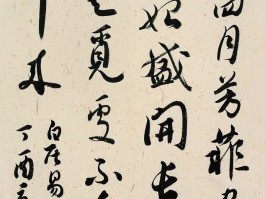 四月芳菲
始盛開長
覓處不
中来
白居易
丁酉